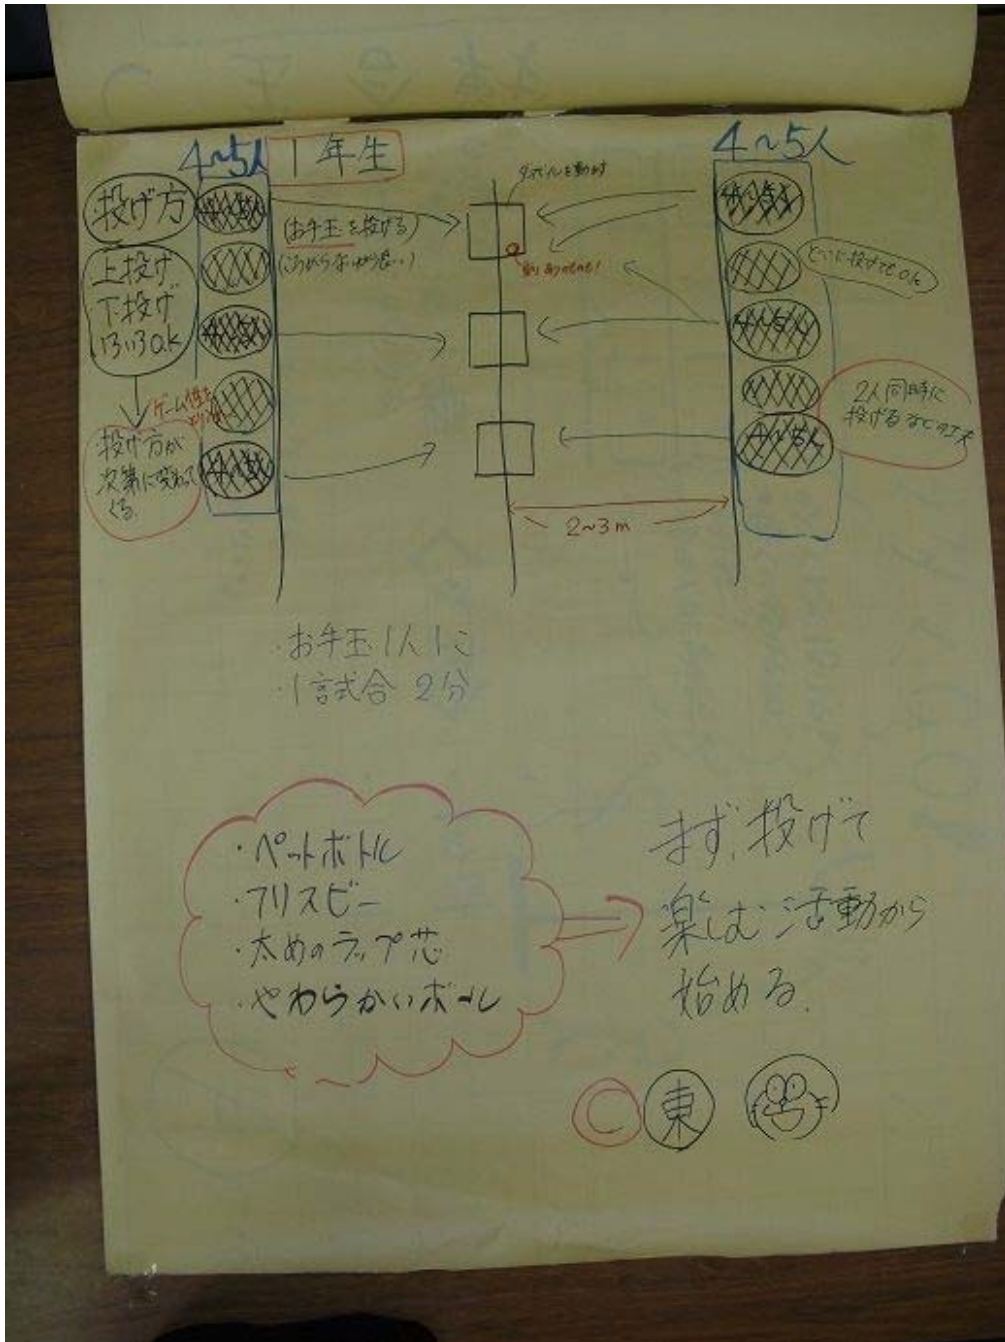 4~5人
1年生
4~5人
投げ方
上投げ
下投げ
いろいろO.K
投げ方が
次第に変わって
くる.
(お手玉を投げる)
(ころがらないから良い)
ダンボールを動かす
どこに投げてもO.k
2人同時に
投げるなどの工夫
2~3m
・お手玉1人1こ
・1試合 2分
・ペットボトル
・フリスビー
・太めのラップ芯
・やわらかいボール
まず、投げて
楽しむ活動から
始める.
C 東